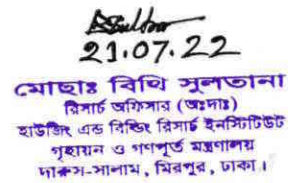 21.07.22
মোছাঃ বিথি সুলতানা
রিসার্চ অফিসার (অঃদাঃ)
হাউজিং এন্ড বিল্ডিং রিসার্চ ইনস্টিটিউট
গৃহায়ন ও গণপূর্ত মন্ত্রণালয়
দারুস-সালাম, মিরপুর, ঢাকা।